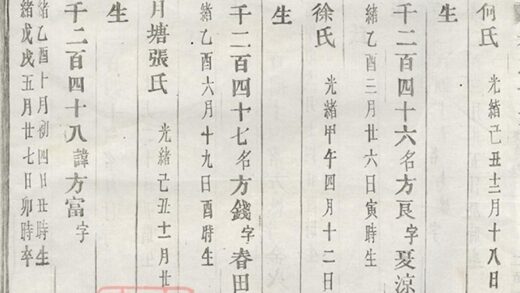 何氏 光緒己丑十二月十八日
生
千二百四十六名方艮字夏涼
緒乙酉二月廿六日寅時生
徐氏 光緒甲午四月十二日
生
千二百四十七名方錢字春田
緒乙酉六月十九日酉時生
月塘張氏 光緒己丑十一月廿
生
千二百四十八諱方富字
緒乙酉十月初四日丑時生
緒戊戌五月廿七日卯時卒